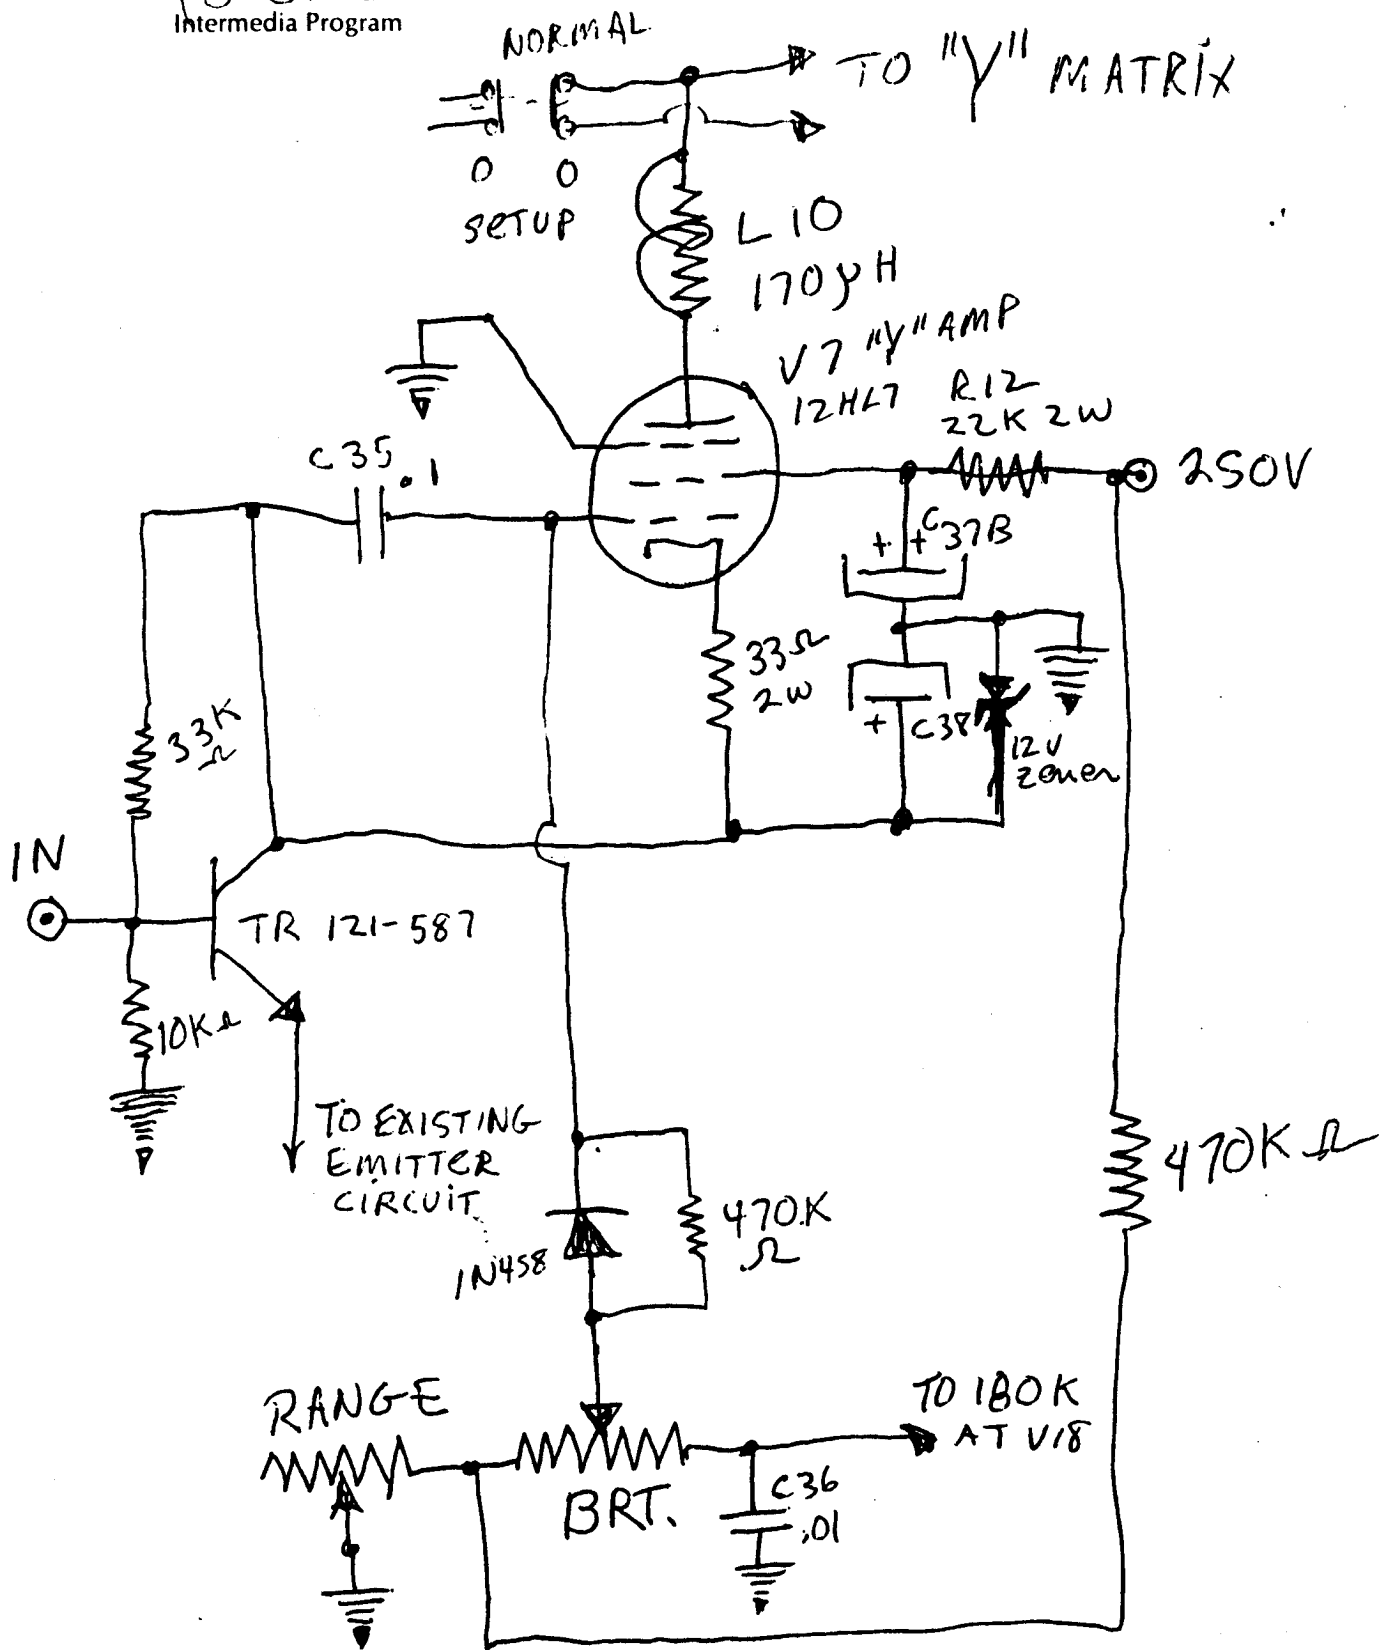 Intermedia Program
NORMAL
TO "Y" MATRIX
O O
SETUP
L 10
170 µH
V7 "Y" AMP
12HL7
R12
22K 2W
250V
C35
.1
+ + C37B
33Ω
2W
+ C38
12V
Zener
33K
Ω
IN
TR 121-587
10KΩ
TO EXISTING
EMITTER
CIRCUIT
1N458
470K
Ω
470KΩ
RANGE
BRT.
TO 180K
AT V18
C36
.01